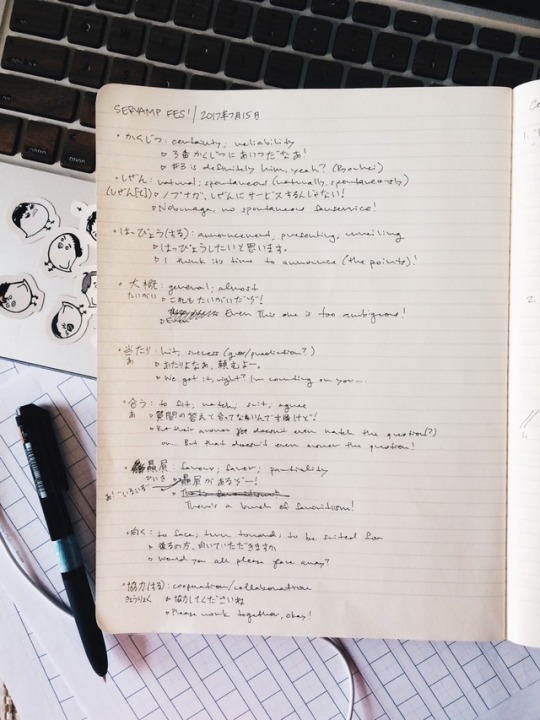 SERVAMP FES! / 2017年7月15日
• かくじつ: certainty, reliability
▷ 3番かくじつにあいつだなあ!
▷ #3 is definitely him, yeah?
• しぜん: natural, spontaneous (naturally, spontaneously)
(しぜん[に]) ▷ ノブナガ、しぜんにサービスするんじゃない!
▷ Nobunaga no spontaneous fanservice!
• はっぴょう(する): announcement, presenting, unveiling
▷ はっぴょうしたいと思います。
▷ I think it's time to announce (the points)!
• 大概: general; almost
たいがい ▷ これもたいがいだぞー!
▷ Even This one is too ambiguous!
• 当たり: hit, success (guess/prediction?)
あ ▷ あたりよなあ、頼むよー。
▷ We got it, right? I'm counting on you~
• 合う: to fit, match, suit, agree
あ ▷ 質問の答えて合ってないんですけど!
▷ But their answer doesn't even match the question(?)
or But that doesn't even answer the question!
• 贔屓: favour; favor; partiality
ひいき ▷ 贔屓があるぞー!
There's a bunch of favouritism!
• 向く: to face; turn toward; to be suited for
▷ 後ろの方、向いていただきますか
▷ Would you all please face away?
• 協力(する): cooperation/collaboration
きょうりょく ▷ 協力してくださいね
▷ Please work together, okay!
1.
2.
1.